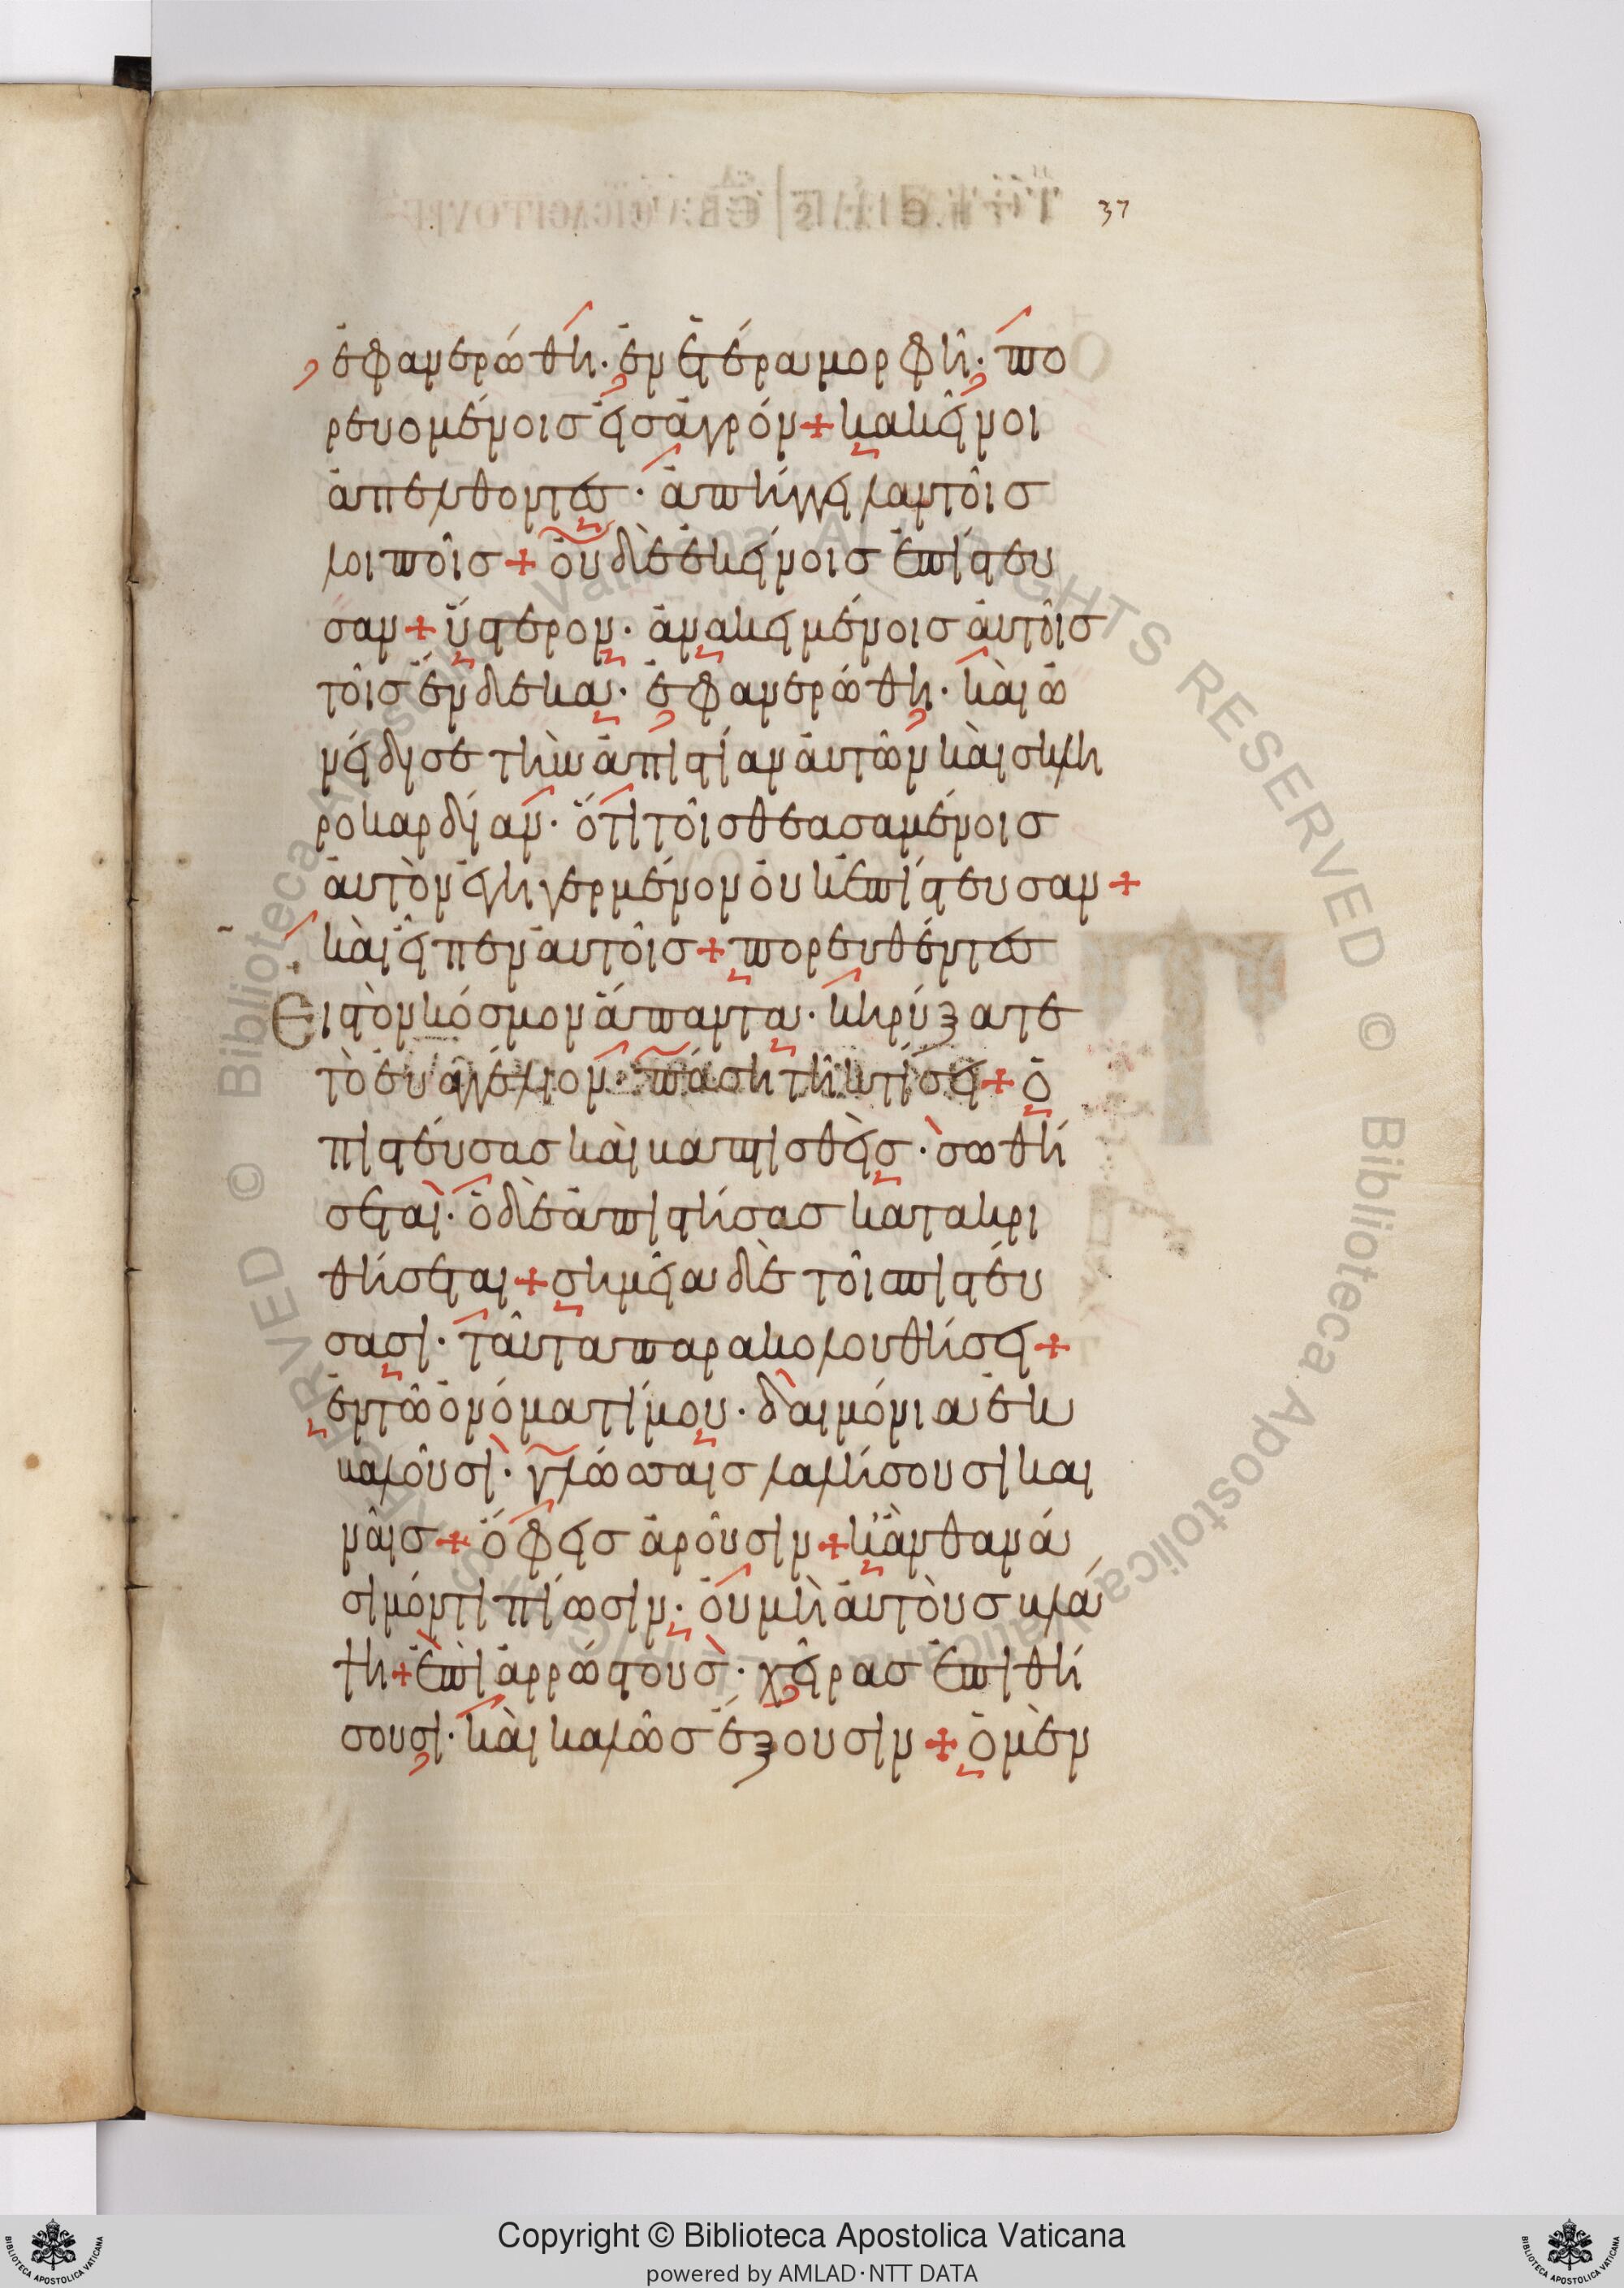 37
ἐφανερώθη· ἐν ἑτέρα μορφῆ· πο
ρευομένοις εἰς ἀγρόν + κακεῖνοι
ἀπελθοντες· ἀπήγγειλαν τοῖς
λοιποῖς + οὐδὲ ἐκείνοις ἐπίστευ
σαν + ὕστερον· ἀνακειμένοις αὐτοῖς
τοῖς ἕνδεκα· ἐφανερώθη· καὶ ὠ
νείδισε τὴν ἀπιστίαν αὐτῶν καὶ σκλη
ροκαρδίαν· ὅτι τοῖς θεασαμένοις
αὐτὸν ἐγηγερμένον οὐκ ἐπίστευσαν +
καὶ εἶπεν αὐτοῖς + πορευθέντες
Εἰς τὸν κόσμον ἅπαντα· κηρύξατε
τὸ εὐαγγέλιον· πάση τῆ κτίσει + ὁ
πιστεύσας καὶ βαπτισθεὶς· σωθή
σεται· ὁ δὲ ἀπιστήσας κατακρι
θήσεται + σημεῖα δὲ τοῖς πιστεύ
σασι· ταῦτα παρακολουθήσει +
ἐν τῶ ὀνόματί μου· δαιμόνια ἐκ
βαλοῦσι· γλώσσαις λαλήσουσι και
ναῖς + ὄφεις ἀροῦσιν + κἂν θανά
σιμόν τι πίωσιν· οὐ μὴ αὐτοὺς βλά
ψη + ἐπὶ ἀρρώστους· χεῖρας ἐπιθή
σουσι· καὶ καλῶς ἕξουσιν + ὁ μὲν
Copyright © Biblioteca Apostolica Vaticana
powered by AMLAD·NTT DATA